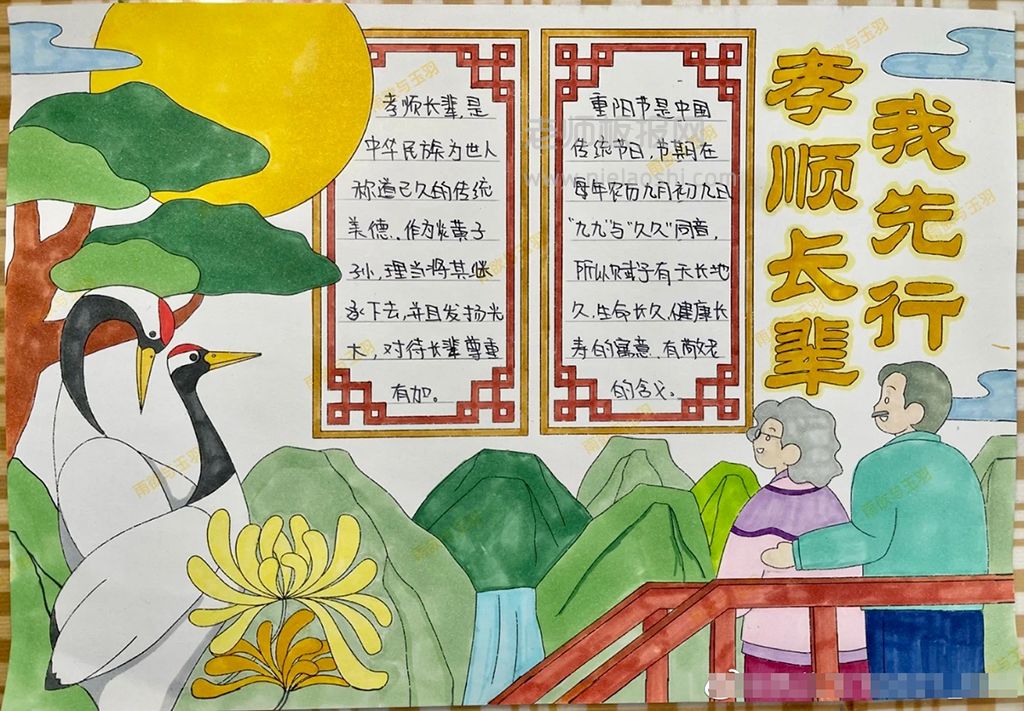 孝顺长辈
我先行
孝顺长辈,是
中华民族为世人
称道已久的传统
美德.作为炎黄子
孙,理当将其继
承下去,并且发扬光
大,对待长辈尊重
有加。
重阳节是中国
传统节日,节期在
每年农历九月初九日
"九九"与"久久"同音,
所以赋予有天长地
久.生命长久.健康长
寿的寓意.有敬老
的含义。
老师板报网
www.njelaoshi.com
雨歌与玉羽